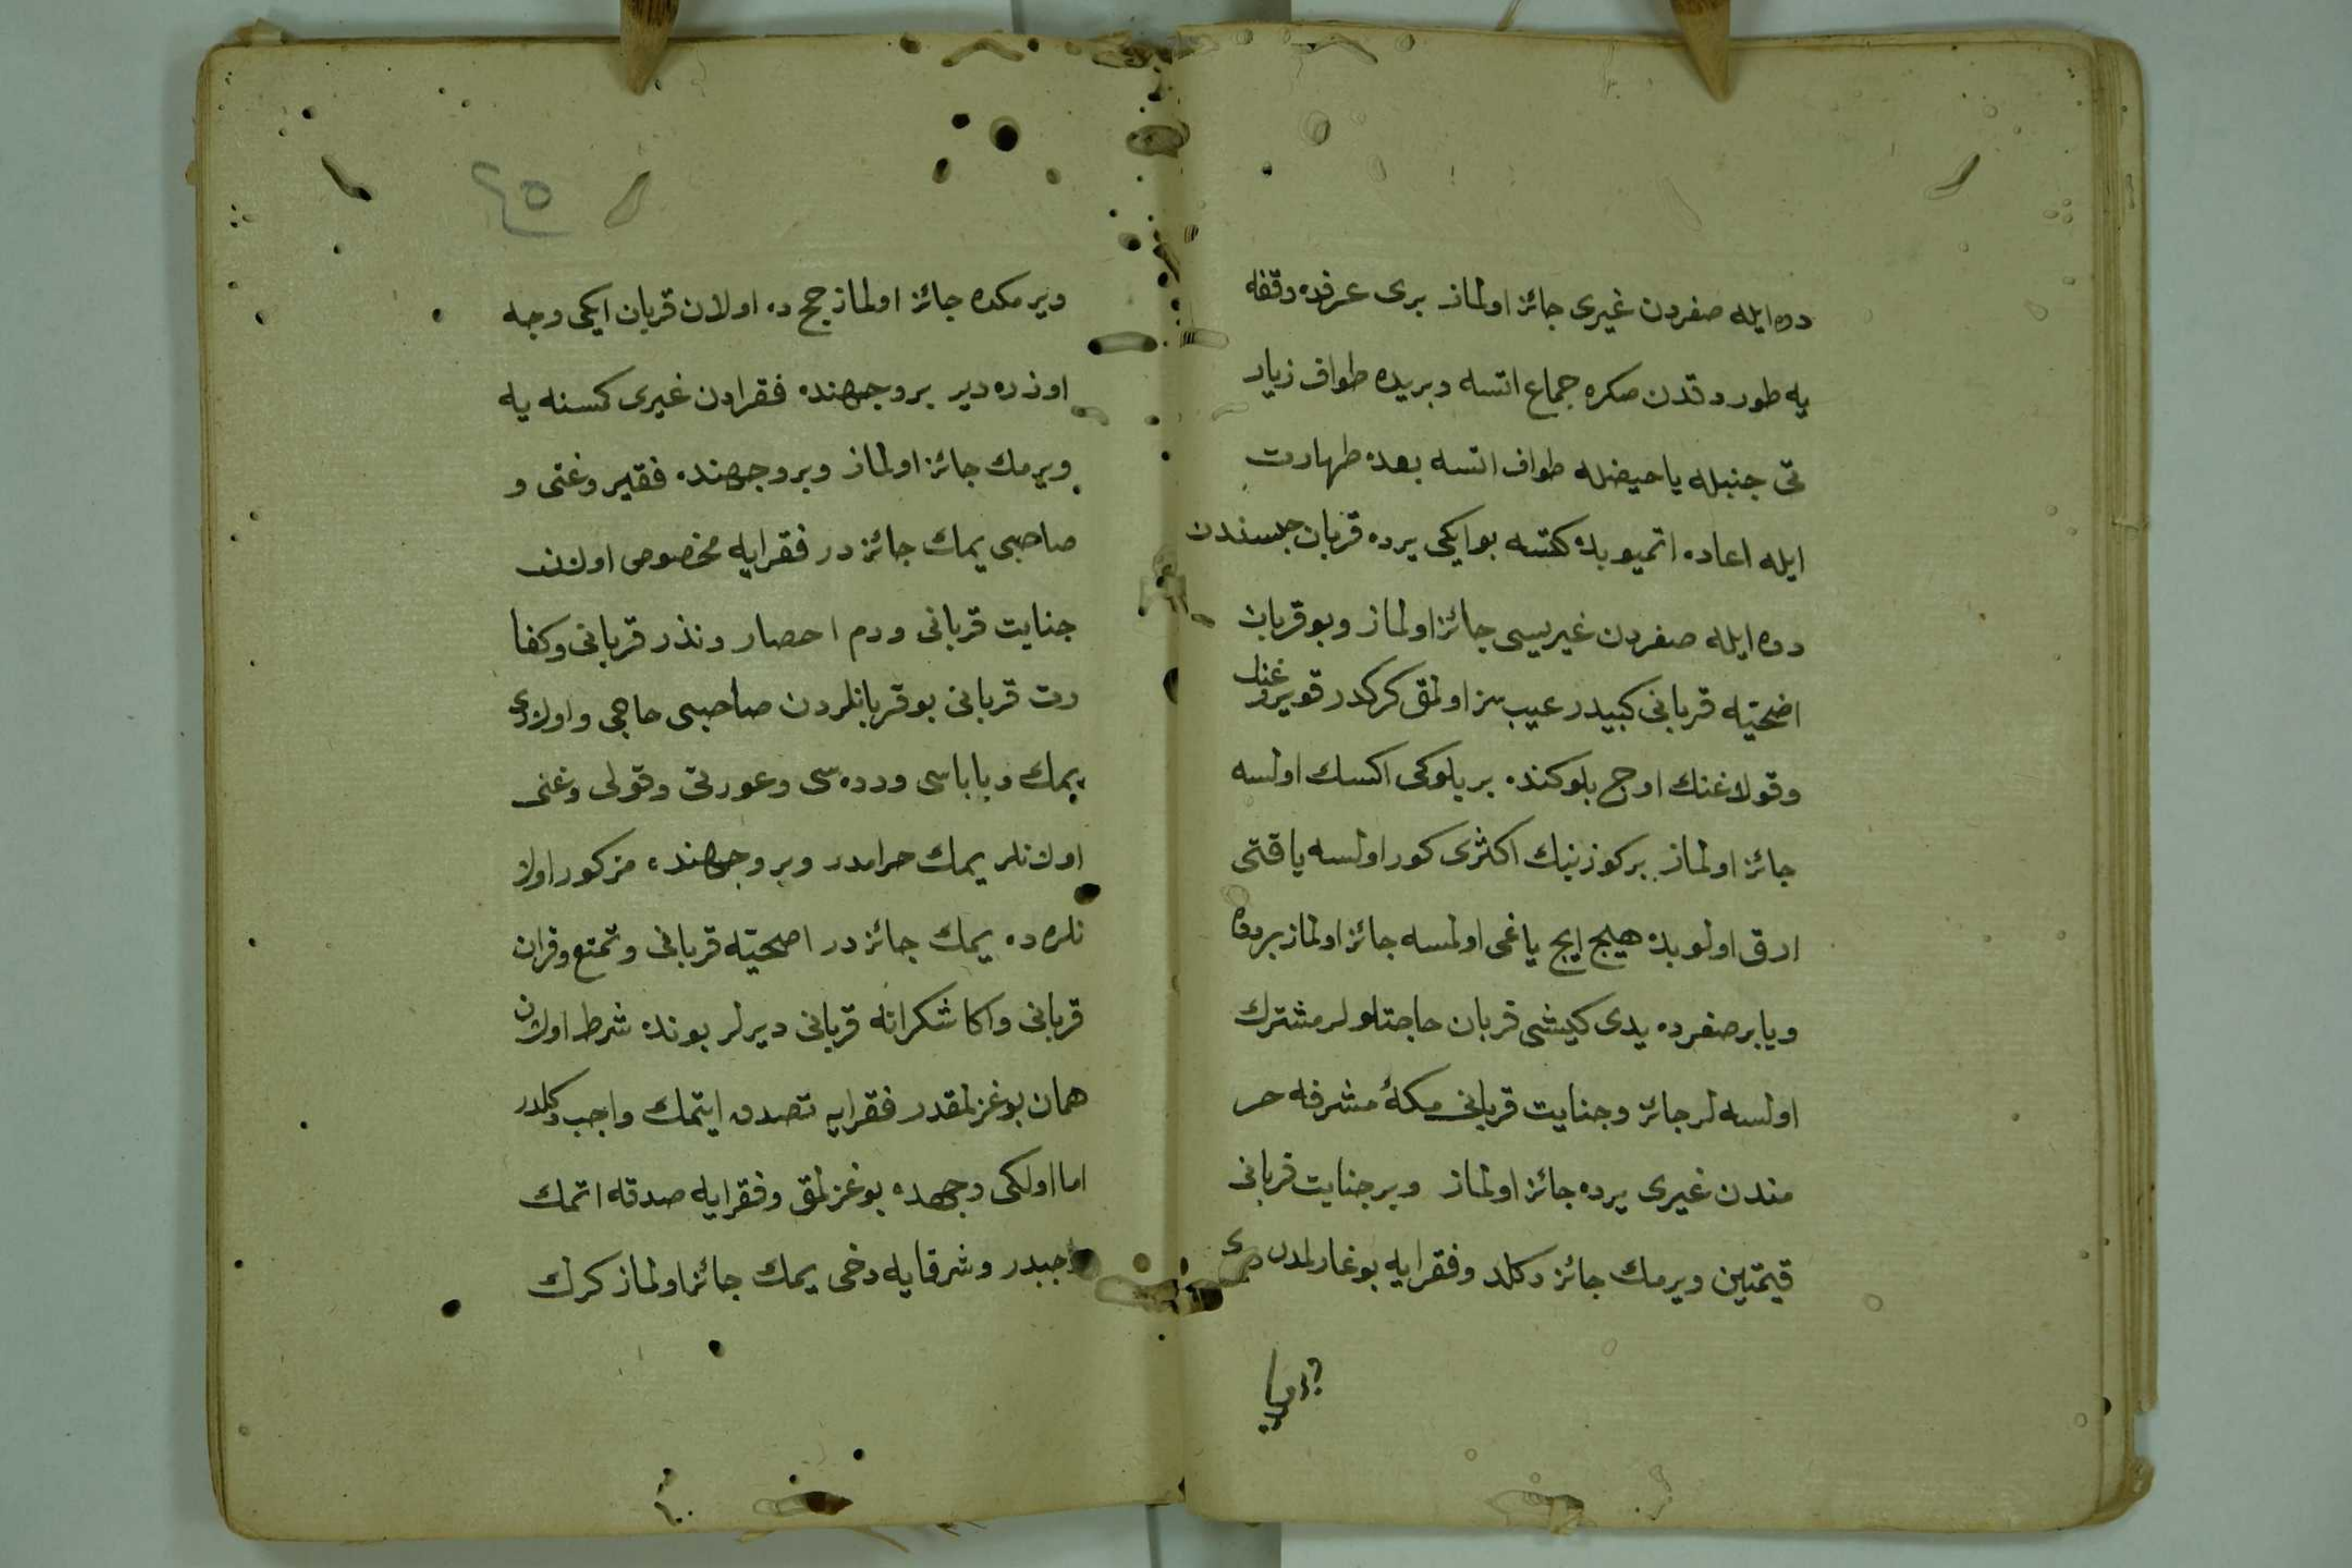 دوه ايله صغردن غيرى جائز اولماز برى عرفده وقفه
يه طوردقدن صكره جماع اتسه و بريده طواف زيار
تى جنبله يا حيضله طواف اتسه بعده طهارت
ايله اعاده اتميوبده كتسه بو ايكى يرده قربان جنسندن
دوه ايله صغردن غيريسى جائز اولماز و بو قربان
اضحيّه قربانى كبيدر عيب سز اولمق كركدر قويروغنك
وقولاغنك اوچ بلوكنده بر بلوكى اكسك اولسه
جائز اولماز بر كوزينك اكثرى كور اولسه يا قتى
ارق اولوبده هيچ ايچ ياغى اولمسه جائز اولماز بر دوه
ويا بر صغرده يدى كيشى قربان حاجتلولر مشترك
اولسه لر جائز وجنايت قربانى مكۀ مشرفه حر
مندن غيرى يرده جائز اولماز وبر جنايت قربانى
قيمتين ويرمك جائز دكلد وفقرايه بوغازلمدن
ويرمكده جائز اولماز حج ده اولان قربان ايكى وجه
اوزره دير بر وجهنده فقرادن غيرى كمسنه يه
ويرمك جائز اولماز وبر وجهنده فقير وغنى و
صاحبى يمك جائز در فقرايه مخصوص اولان
جنايت قربانى ودم احصار ونذر قربانى وكفا
رت قربانى بو قربانلردن صاحبى حاجى واولادى
يمك وباباسى ودده سى وعورتى وقولى وغنى
اولانلر يمك حرامدر وبر وجهنده مزكور اولا
نلره ده يمك جائز در اضحيّه قربانى وتمتع وقران
قربانى واكا شكرانه قربانى ديرلر بونده شرط اولان
همان بوغزلمقدر فقرايه تصدق ايتمك واجب دكلدر
اما اولكى وجهده بوغزلمق وفقرايه صدقه اتمك
واجبدر وشرفايه دخى يمك جائز اولماز كرك
٤٥